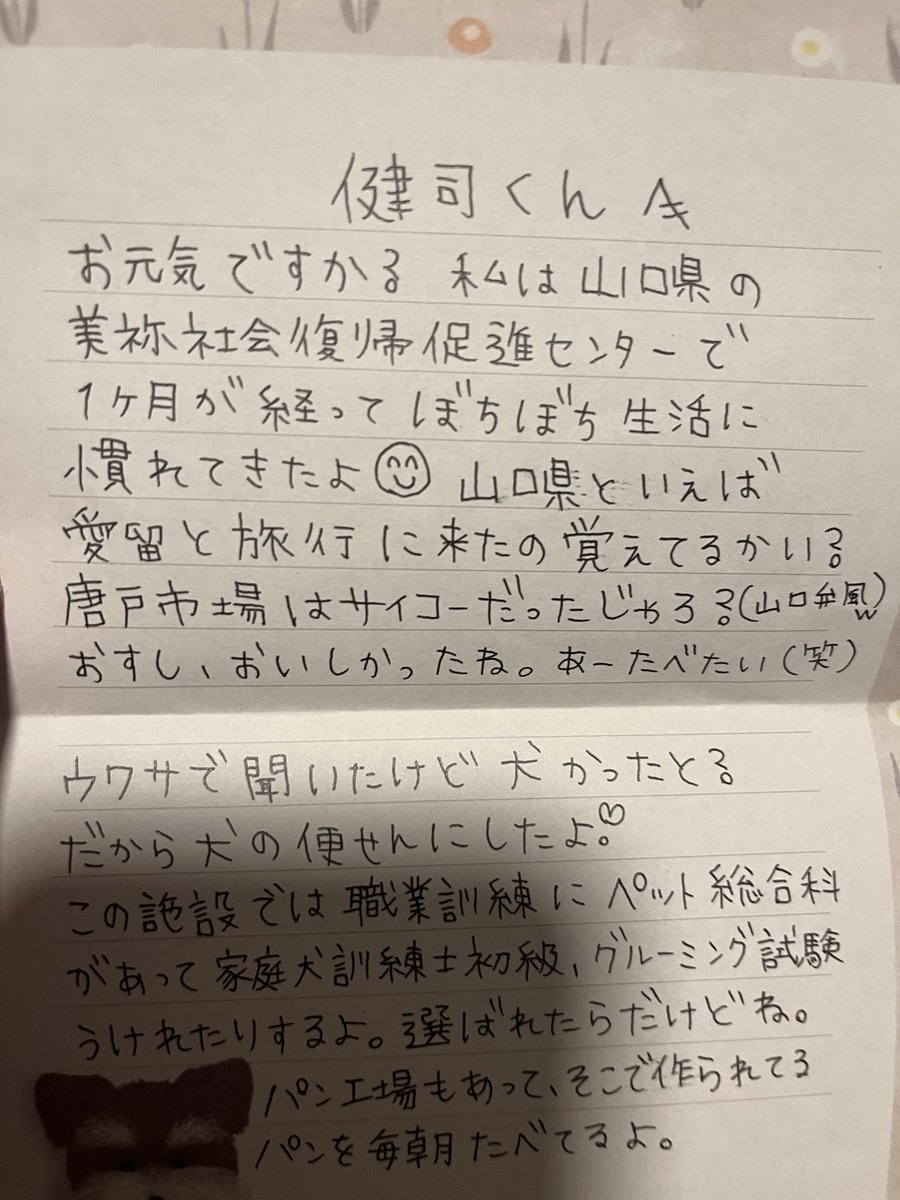 健司くんへ
お元気ですか? 私は山口県の
美祢社会復帰促進センターで
1ヶ月が経ってぼちぼち生活に
慣れてきたよ 山口県といえば
愛留と旅行に来たの覚えてるかい?
唐戸市場はサイコーだったじゃろ?(山口弁風w)
おすし、おいしかったね。あーたべたい(笑)
ウワサで聞いたけど犬かったと?
だから犬の便せんにしたよ♡
この施設では職業訓練にペット総合科
があって家庭犬訓練士初級、グルーミング試験
うけれたりするよ。選ばれたらだけどね。
パン工場もあって、そこで作られてる
パンを毎朝たべてるよ。